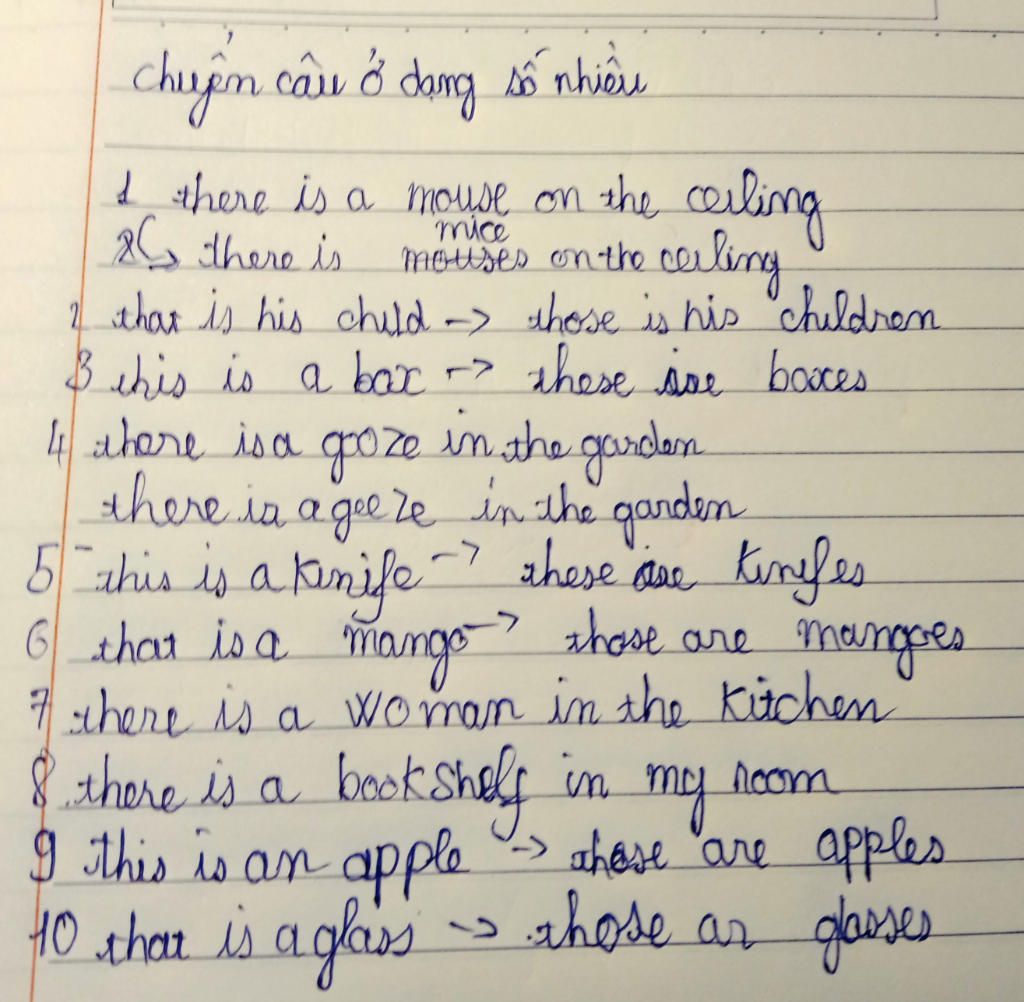 chuyển câu ở dạng số nhiều
1 there is a mouse on the ceiling
mice
2 there is mouses on the ceiling
2 that is his child -> those is his children
3 this is a box -> these are boxes
4 there is a gooze in the garden
there is a geeze in the garden
5 - this is a knife -> these are knifes
6 that is a mango -> those are mangoes
7 there is a woman in the kitchen
8 there is a bookshelf in my room
9 this is an apple -> these are apples
10 that is a glass -> those ar glasses